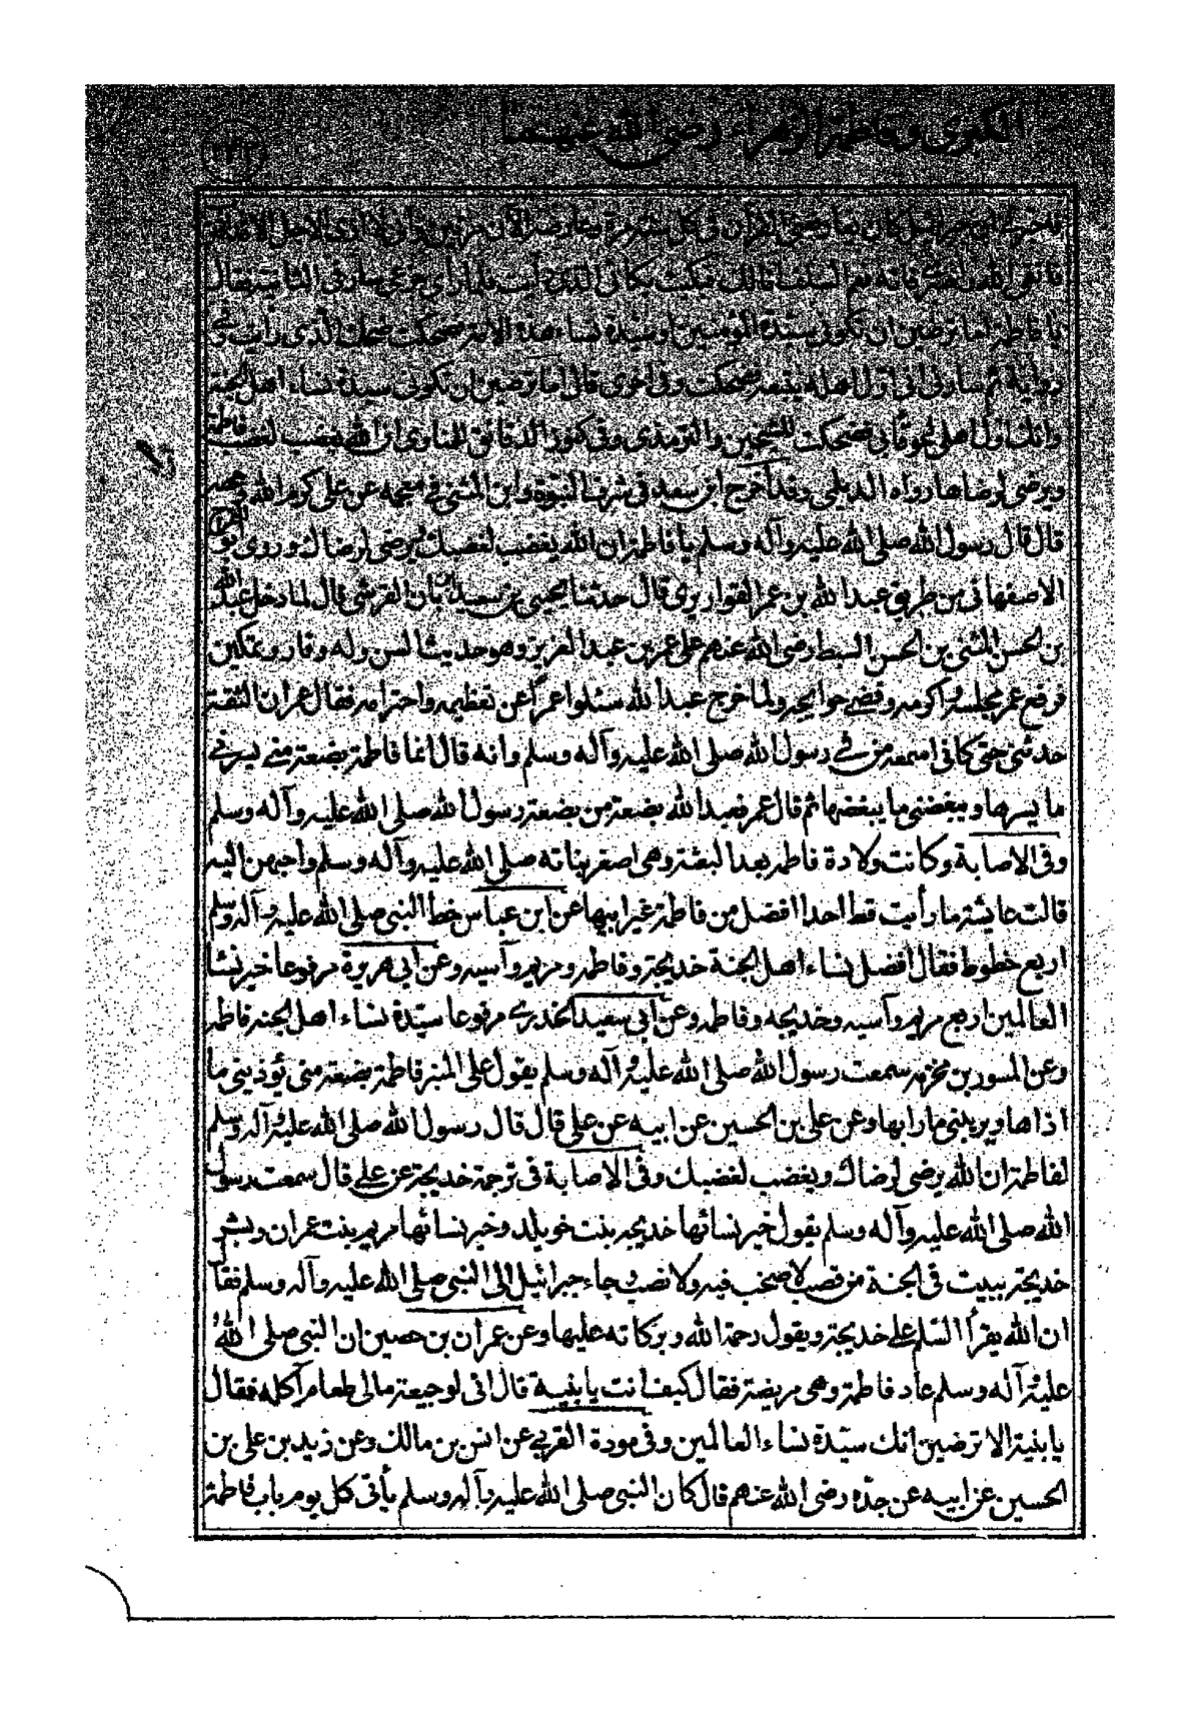 الكبرى وفاطمة الزهراء رضى الله عنهما
فاخبرنى ان جبرائيل كان يعارضنى القرآن فى كل سنة مرة وعارضه الآن مرتين وانى لا ارى الاجل الا قد اقترب
فاتقى الله واصبرى فانه نعم السلف انا لك فبكيت بكائى الذى رأيت فلما رأى جزعى سارنى الثانية فقال
يا فاطمة اما ترضين ان تكونى سيدة المؤمنين او سيدة نساء هذه الامة فضحكت ضحكى الذى رأيت وفى
رواية ثم سارنى انى اول اهله يتبعه فضحكت وفى اخرى قال اما ترضين ان تكونى سيدة نساء اهل الجنة
وانك اول اهلى لحوقا بى فضحكت للشيخين والترمذى وفى كنوز الدقائق للمناوى ان الله يغضب لغضب فاطمة
ويرضى لرضاها رواه الديلمى وقد اخرج ابن سعيد فى شرف النبوة وابن المثنى فى معجمه عن على كرم الله وجهه
قال قال رسول الله صلى الله عليه وآله وسلم يا فاطمة ان الله يغضب لغضبك ويرضى لرضاك وروى ابو الفرج
الاصفهانى من طريق عبد الله بن عمر القواريرى قال حدثنا يحيى بن سعيد بن ابان القرشى قال لما دخل عبد الله
بن الحسن المثنى بن الحسن السبط رضى الله عنهم على عمر بن عبد العزيز وهو حديث السن وله وقار وتمكين
فرفع عمر مجلسه واكرمه وقضى حوايجه ولما خرج عبد الله سئلوا عمرا عن تعظيمه واحترامه فقال عمر ان الثقة
حدثنى حتى كانى اسمعه من فى رسول الله صلى الله عليه وآله وسلم وانه قال انما فاطمة بضعة منى يسرنى
ما يسرها ويبغضنى ما يبغضها ثم قال عمر فعبد الله بضعة من بضعة رسول الله صلى الله عليه وآله وسلم
وفى الاصابة وكانت ولادة فاطمة بعد البعثة وهى اصغر بناته صلى الله عليه وآله وسلم واحبهن اليه
قالت عايشة ما رأيت قط احدا افضل من فاطمة غير ابيها عن ابن عباس خط النبى صلى الله عليه وآله وسلم
اربع خطوط فقال افضل نساء اهل الجنة خديجة وفاطمة ومريم وآسيه وعن ابى هريرة مرفوعا خير نسا
العالمين اربع مريم وآسيه وخديجه وفاطمه وعن ابى سعيد الخدرى مرفوعا سيّدة نساء اهل الجنه فاطمه
وعن المسور بن مخرمه سمعت رسول الله صلى الله عليه وآله وسلم يقول على المنبر فاطمة بضعة منى يؤذينى ما
اذاها ويريبنى ما رابها وعن على بن الحسين عن ابيه عن على قال قال رسول الله صلى الله عليه وآله وسلم
لفاطمة ان الله يرضى لرضاك ويغضب لغضبك وفى الاصابة فى ترجمة خديجة عن على قال سمعت رسول
الله صلى الله عليه وآله وسلم يقول خير نسائها خديجه بنت خويلد وخير نسائها مريم بنت عمران وبشر
خديجة ببيت فى الجنة من قصب لا صخب فيه ولا نصب وجاء جبرائيل الى النبى صلى الله عليه وآله وسلم فقال
ان الله يقرأ السلم على خديجة ويقول رحمة الله وبركاته عليها وعن عمران بن حصين ان النبى صلى الله
عليه وآله وسلم عاد فاطمة وهى مريضة فقال كيف انت يا بنية قال انى لوجيعة مالى طعام آكله فقال
يا بنية الا ترضين انك سيّدة نساء العالمين وفى مودة القربى عن انس بن مالك وعن زيد بن على بن
الحسين عن ابيه عن جدّه رضى الله عنهم قال كان النبى صلى الله عليه وآله وسلم يأتى كل يوم باب فاطمة